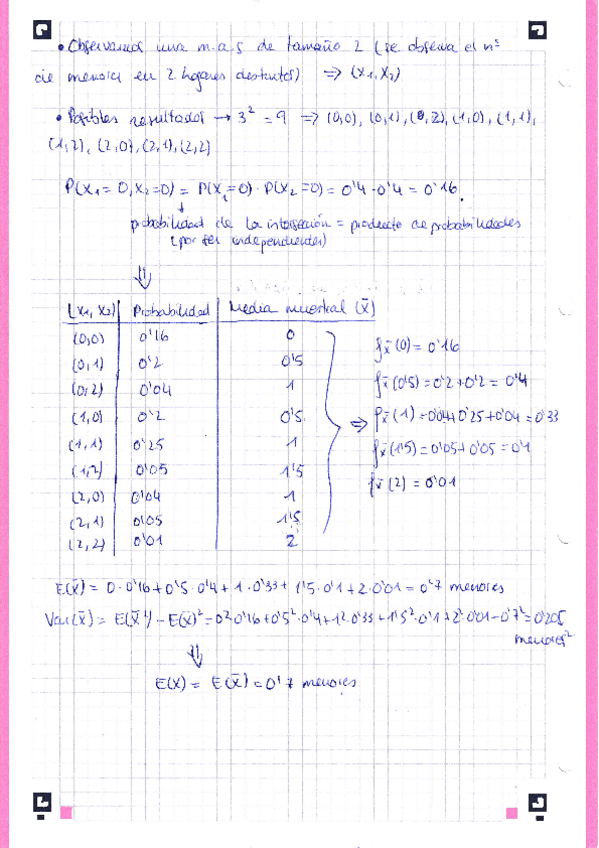 • Observamos una m.a.s de tamaño 2 (se observa el nº
de menores en 2 hogares distintos) ⇒ (X₁,X₂)
• Posibles resultados → 3² = 9 ⇒ (0,0), (0,1), (0,2), (1,0), (1,1),
(1,2), (2,0), (2,1), (2,2)
P(X₁=0, X₂=0) = P(X₁=0) · P(X₂=0) = 0'4 · 0'4 = 0'16.
↓
probabilidad de la intersección = producto de probabilidades
(por ser independientes)
⇓
(X₁, X₂) | Probabilidad | Media muestral (x̄)
(0,0) 0'16 0
(0,1) 0'2 0'5
(0,2) 0'04 1
(1,0) 0'2 0'5
(1,1) 0'25 1
(1,2) 0'05 1'5
(2,0) 0'04 1
(2,1) 0'05 1'5
(2,2) 0'01 2
⇒
fx̄(0) = 0'16
fx̄(0'5) = 0'2+0'2 = 0'4
fx̄(1) = 0'04+0'25+0'04 = 0'33
fx̄(1'5) = 0'05+0'05 = 0'1
fx̄(2) = 0'01
E(x̄) = 0·0'16+0'5·0'4+1·0'33+1'5·0'1+2·0'01 = 0'7 menores
Var(x̄) = E(x̄²) - E(x̄)² = 0²·0'16+0'5²·0'4+1²·0'33+1'5²·0'1+2²·0'01-0'7² = 0'205
menores²
⇓
E(X) = E(x̄) = 0'7 menores